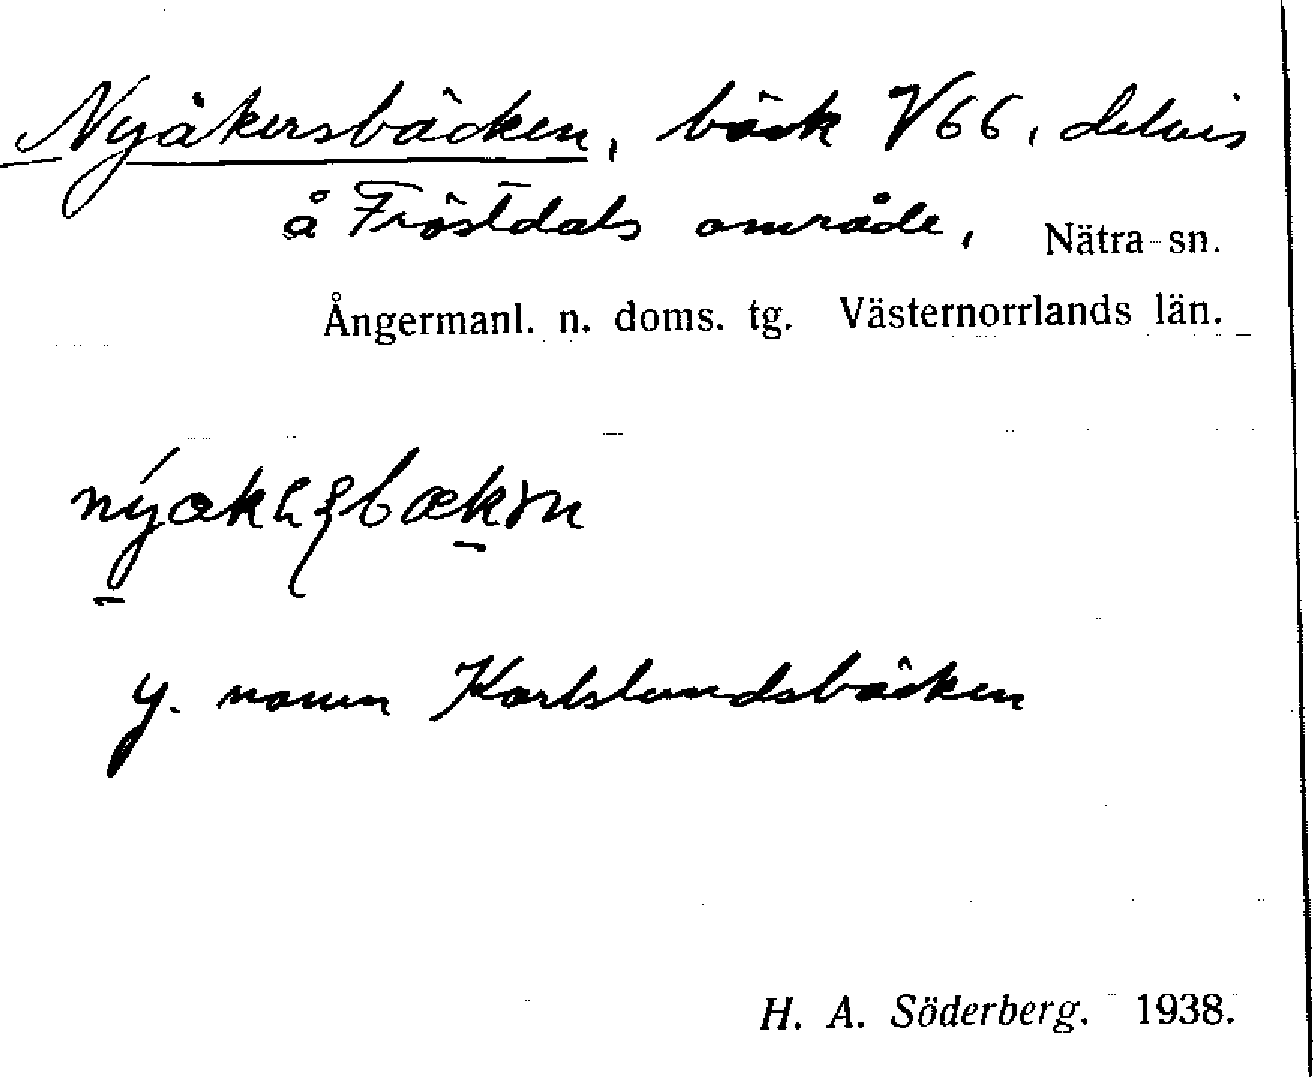 Nyåkersbäcken, bäck V66, delvis
å Fröstdals område, Nätra sn.
Ångermanl. n. doms. tg. Västernorrlands län.
y. namn Karlslundsbäcken
H. A. Söderberg. 1938.